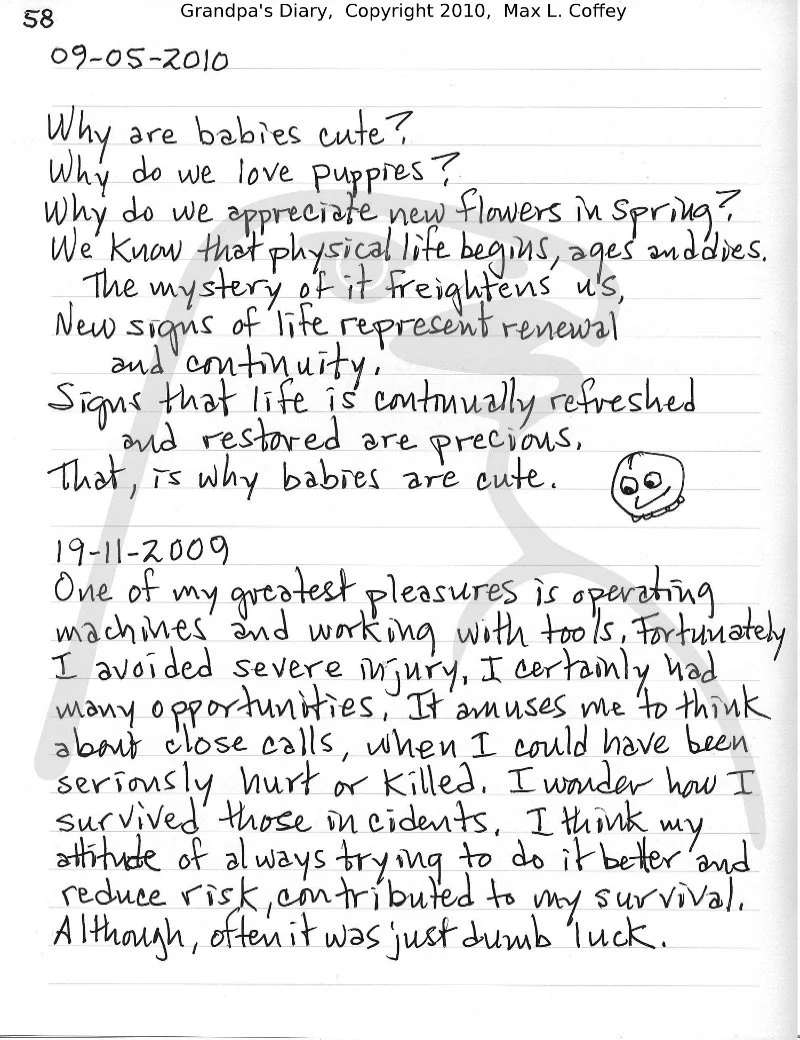 58
Grandpa's Diary, Copyright 2010, Max L. Coffey
09-05-2010
Why are babies cute?
Why do we love puppies?
Why do we appreciate new flowers in spring?
We know that physical life begins, ages and dies.
The mystery of it freightens us,
New signs of life represent renewal
and continuity.
Signs that life is continually refreshed
and restored are precious.
That, is why babies are cute.
19-11-2009
One of my greatest pleasures is operating
machines and working with tools. Fortunately
I avoided severe injury, I certainly had
many opportunities. It amuses me to think
about close calls, when I could have been
seriously hurt or killed. I wonder how I
survived those incidents. I think my
attitude of always trying to do it better and
reduce risk, contributed to my survival.
Although, often it was just dumb luck.